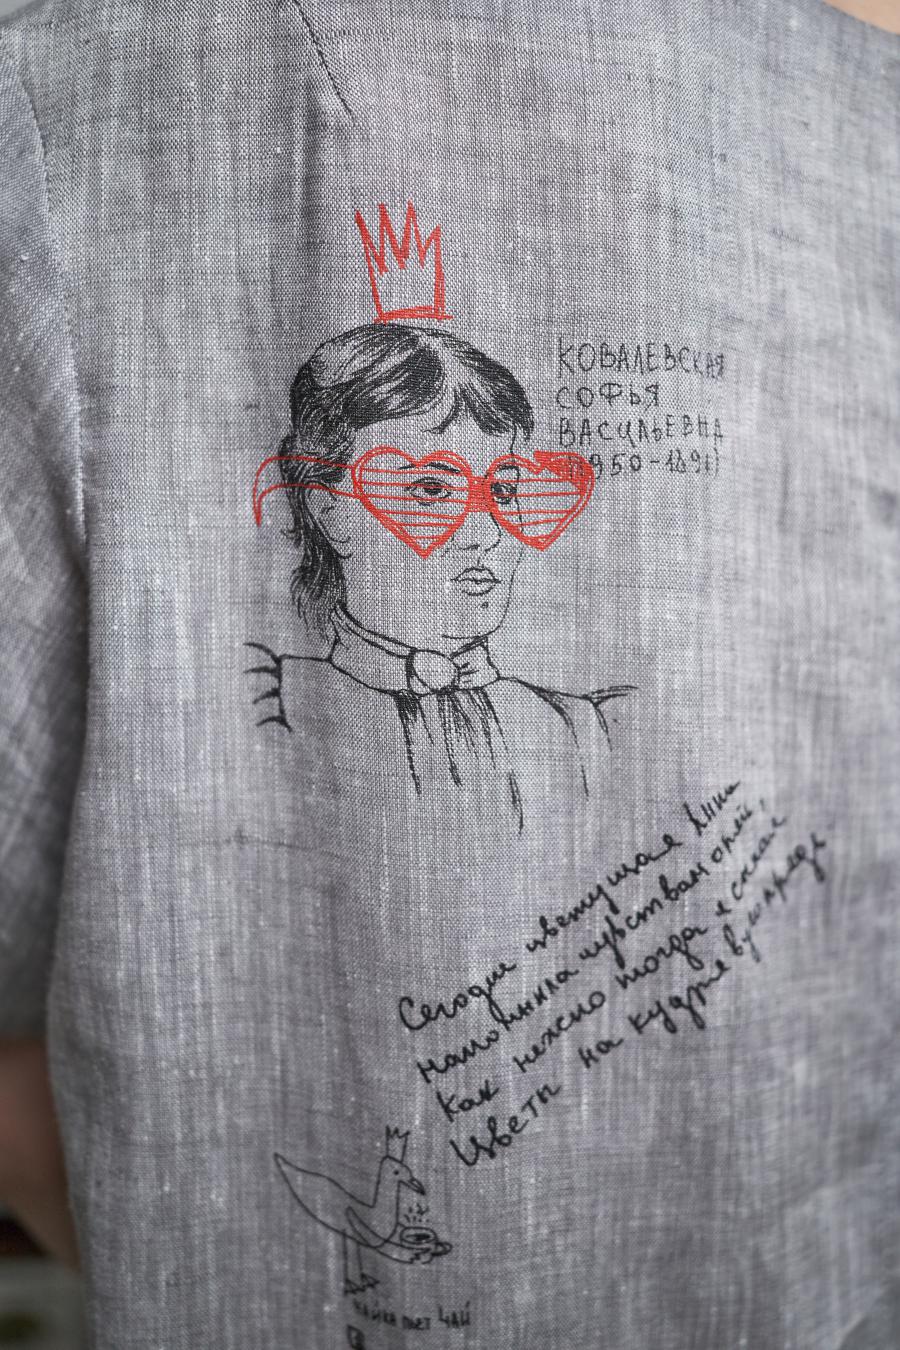 КОВАЛЕВСКАЯ
СОФЬЯ
ВАСИЛЬЕВНА
(1950-1891)
Сегодня цветущая
напомнила чувствам
Как нежно тогда я
Цветы на кудрях
ЧАЙКА ПЬЕТ ЧАЙ